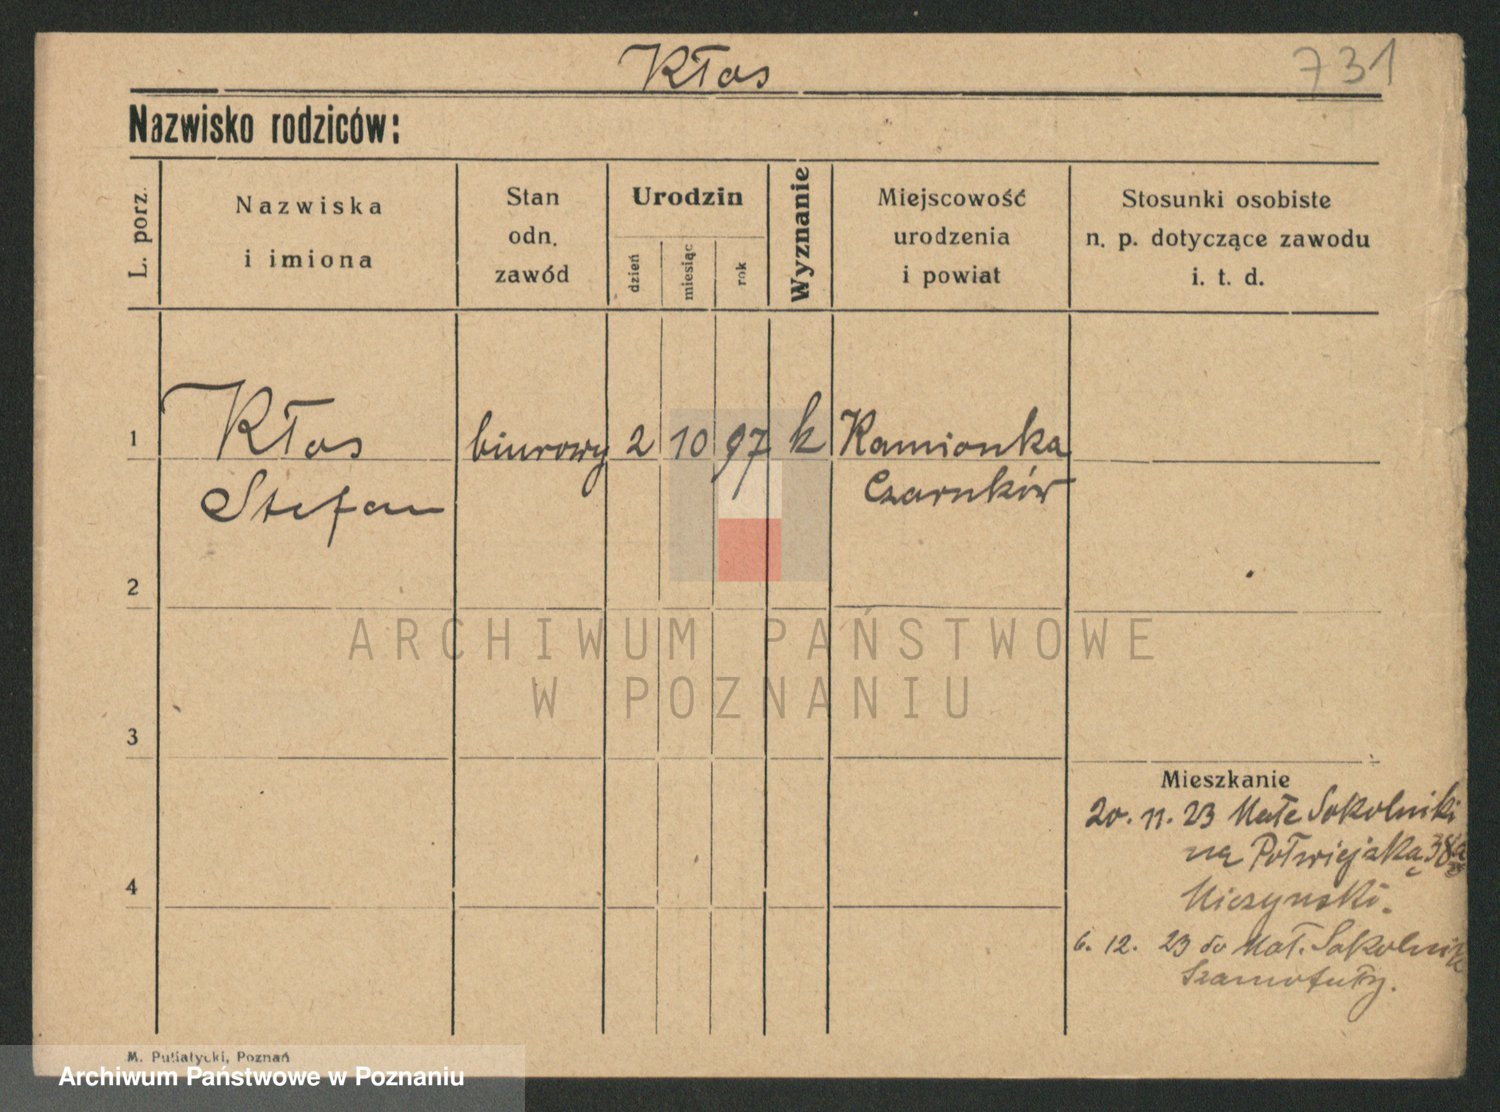 Kłos
731
Nazwisko rodziców:
L. porz.
Nazwiska
i imiona
Stan
odn.
zawód
Urodzin
dzień
miesiąc
rok
Wyznanie
Miejscowość
urodzenia
i powiat
Stosunki osobiste
n. p. dotyczące zawodu
i. t. d.
1
Kłos
Stefan
biurowy
2
10
97
k
Kamionka
Czarnków
2
3
4
Mieszkanie
20. 11. 23 Małe Sokolniki
na Półwiejską 38a
6. 12. 23 do Mał. Sokolnik
Szamotuły.
ARCHIWUM PAŃSTWOWE
W POZNANIU
M. Putiatycki, Poznań
Archiwum Państwowe w Poznaniu